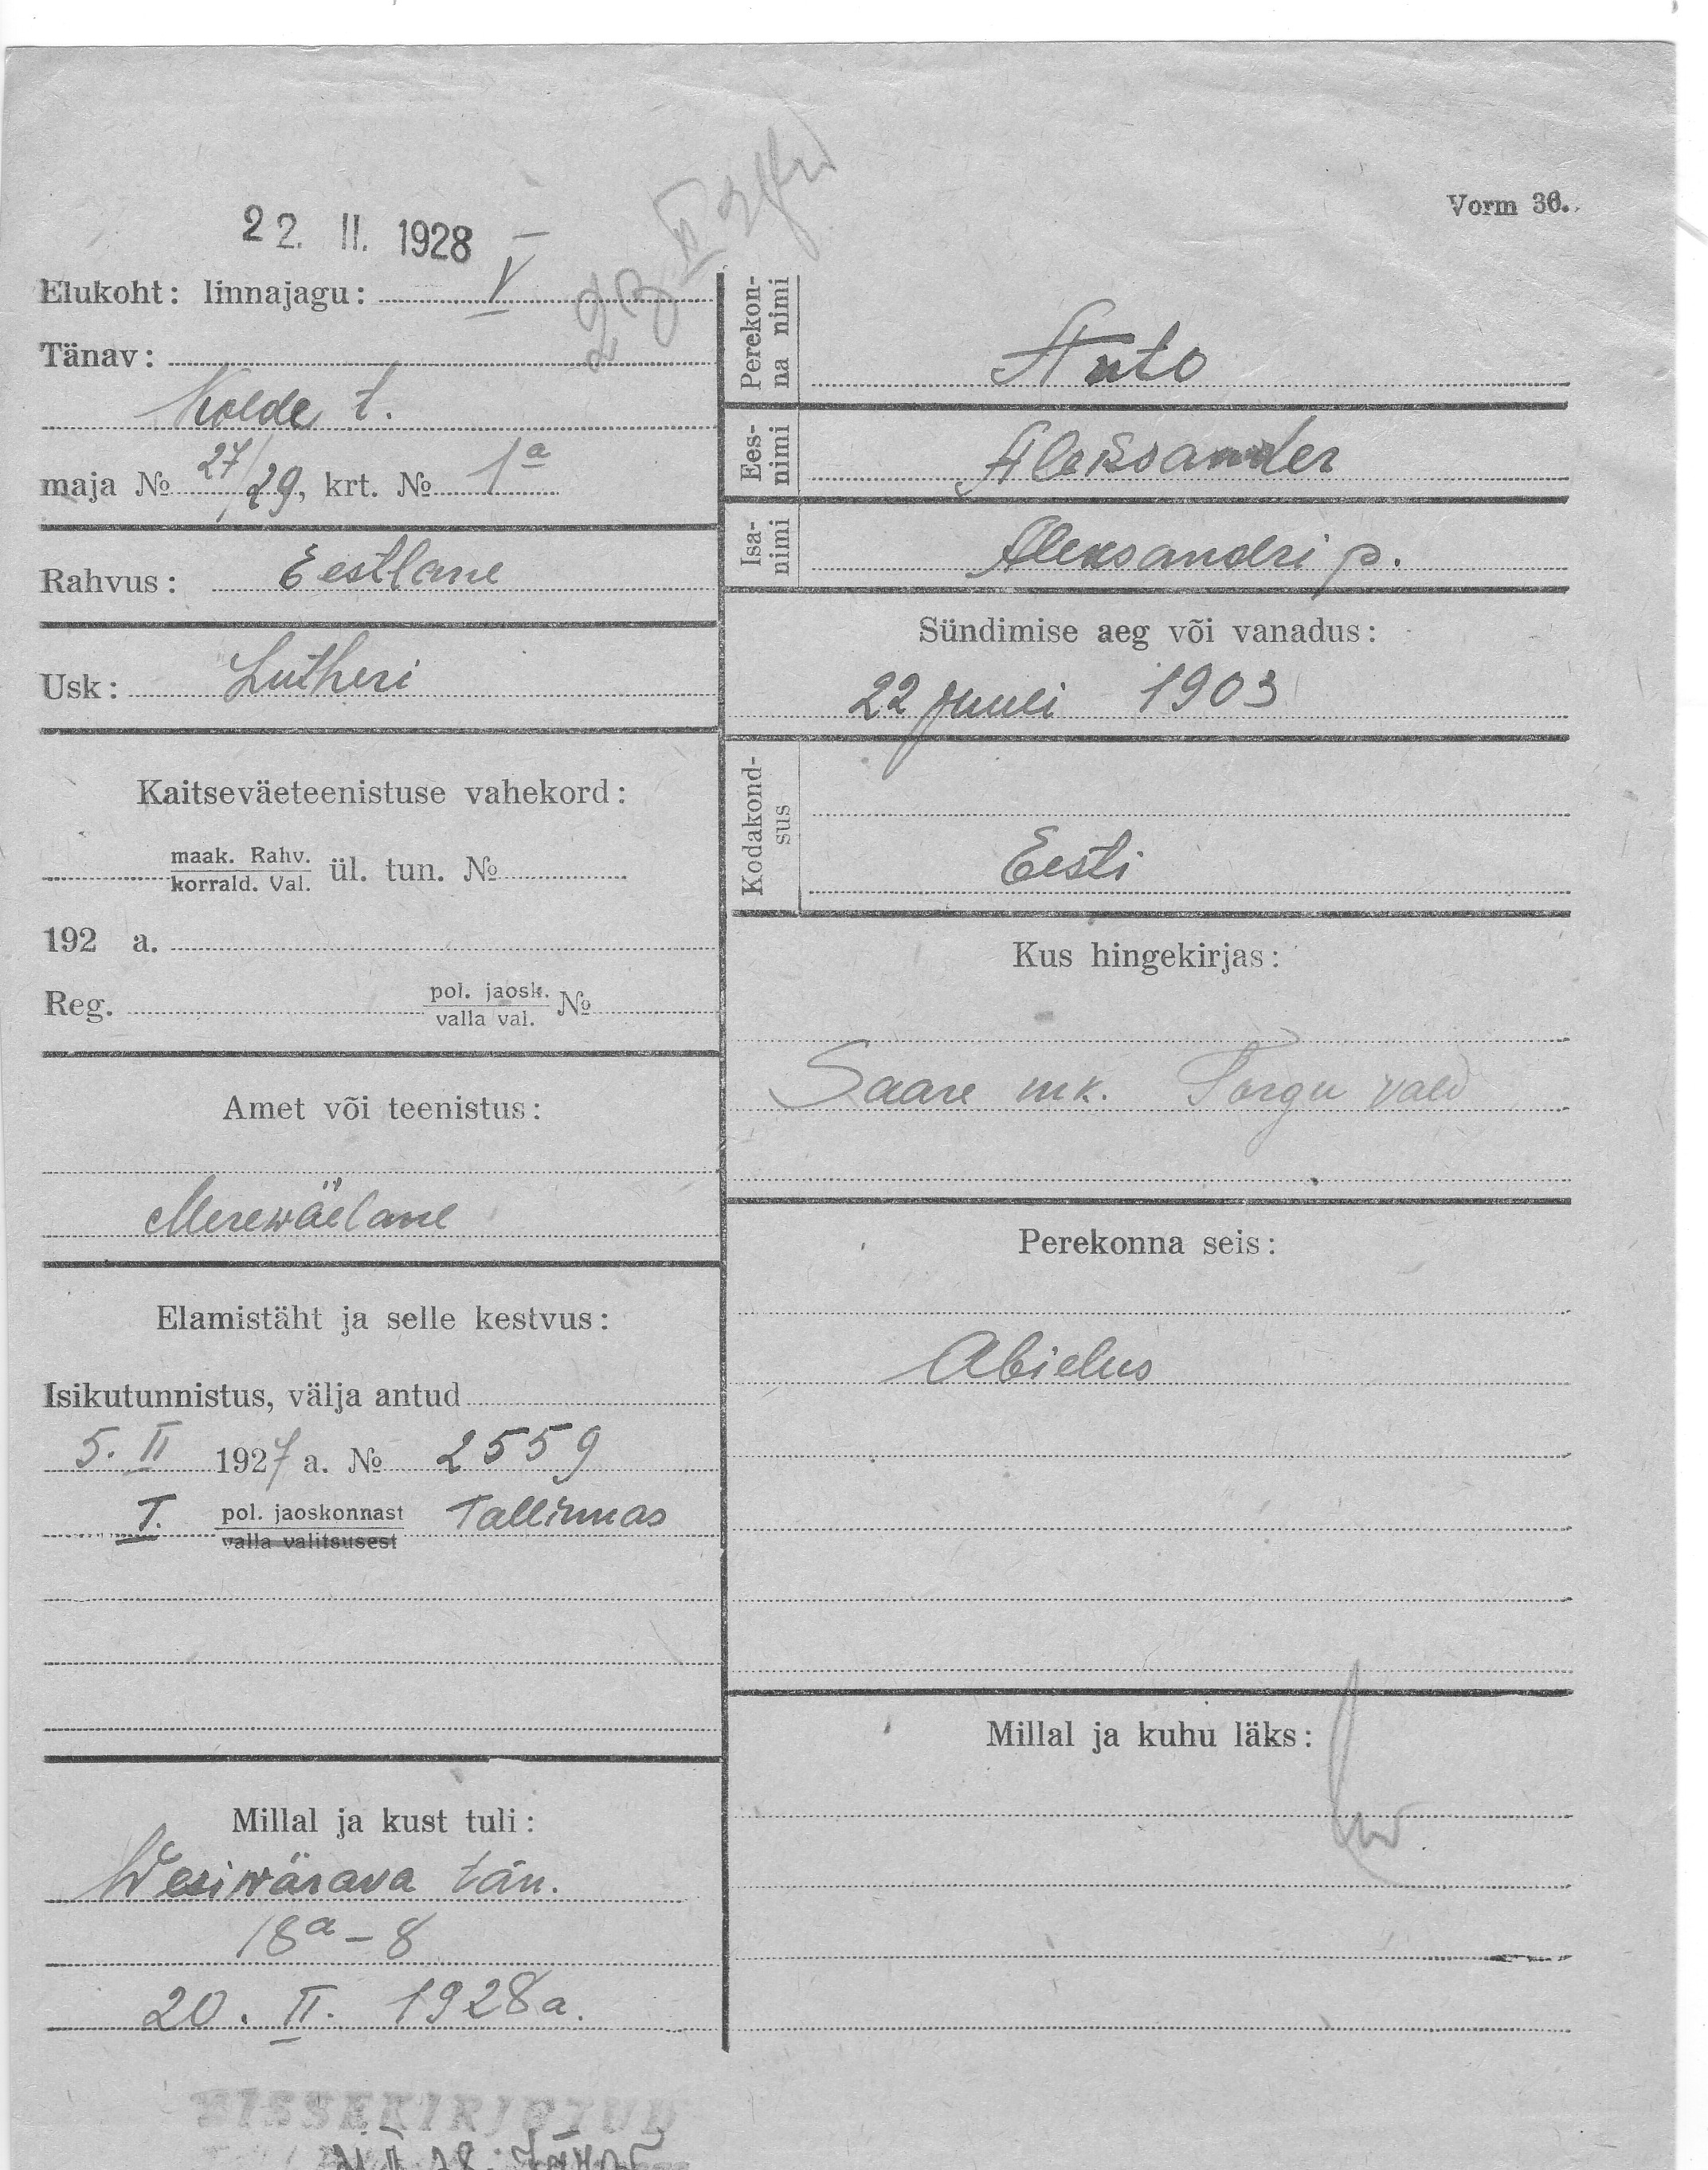 Vorm 36.
22. II. 1928
Elukoht: linnajagu: V
Tänav:
Kolde t.
maja № 27/29, krt. № 1a
Rahvus: Eestlane
Usk: Lutheri
Kaitseväeteenistuse vahekord:
maak. Rahv.
korrald. Val. ül. tun. №
192 a.
Reg. pol. jaosk.
valla val. №
Amet või teenistus:
Merewäelane
Elamistäht ja selle kestvus:
Isikutunnistus, välja antud
5. II 1927 a. № 2559
I. pol. jaoskonnast Tallinnas
valla valitsusest
Millal ja kust tuli:
Wesiwärava tän.
18a - 8
20. II. 1928 a.
SISSEKIRJUTUD
Perekon-
na nimi
Auto
Ees-
nimi
Aleksander
Isa-
nimi
Aleksandri p.
Sündimise aeg või vanadus:
22 juuli 1903
Kodakond-
sus
Eesti
Kus hingekirjas:
Saare mk. Torgu vald
Perekonna seis:
Abielus
Millal ja kuhu läks: